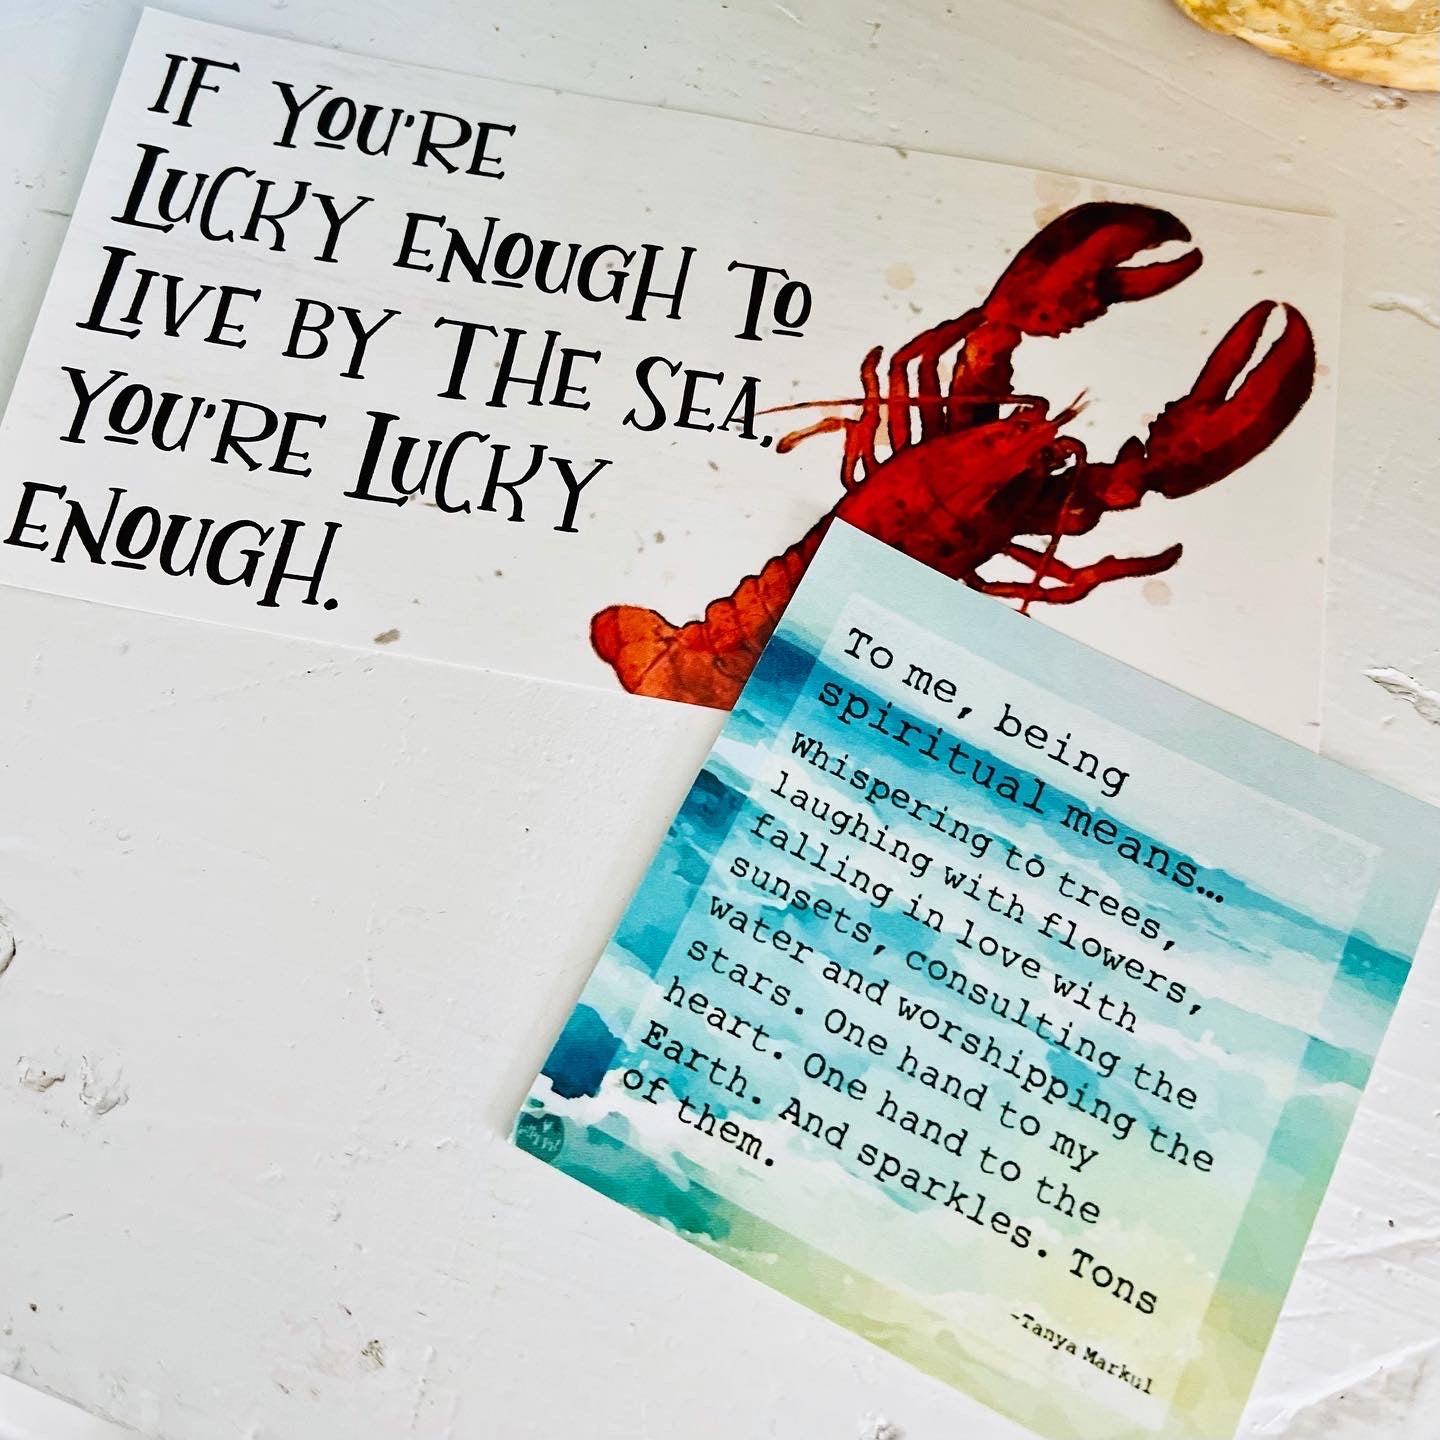 IF YOU'RE
LUCKY ENOUGH TO
LIVE BY THE SEA,
YOU'RE LUCKY
ENOUGH.
To me, being
spiritual means...
Whispering to trees,
laughing with flowers,
falling in love with
sunsets, consulting the
water and worshipping the
stars. One hand to my
heart. One hand to the
Earth. And sparkles. Tons
of them.
-Tanya Markul